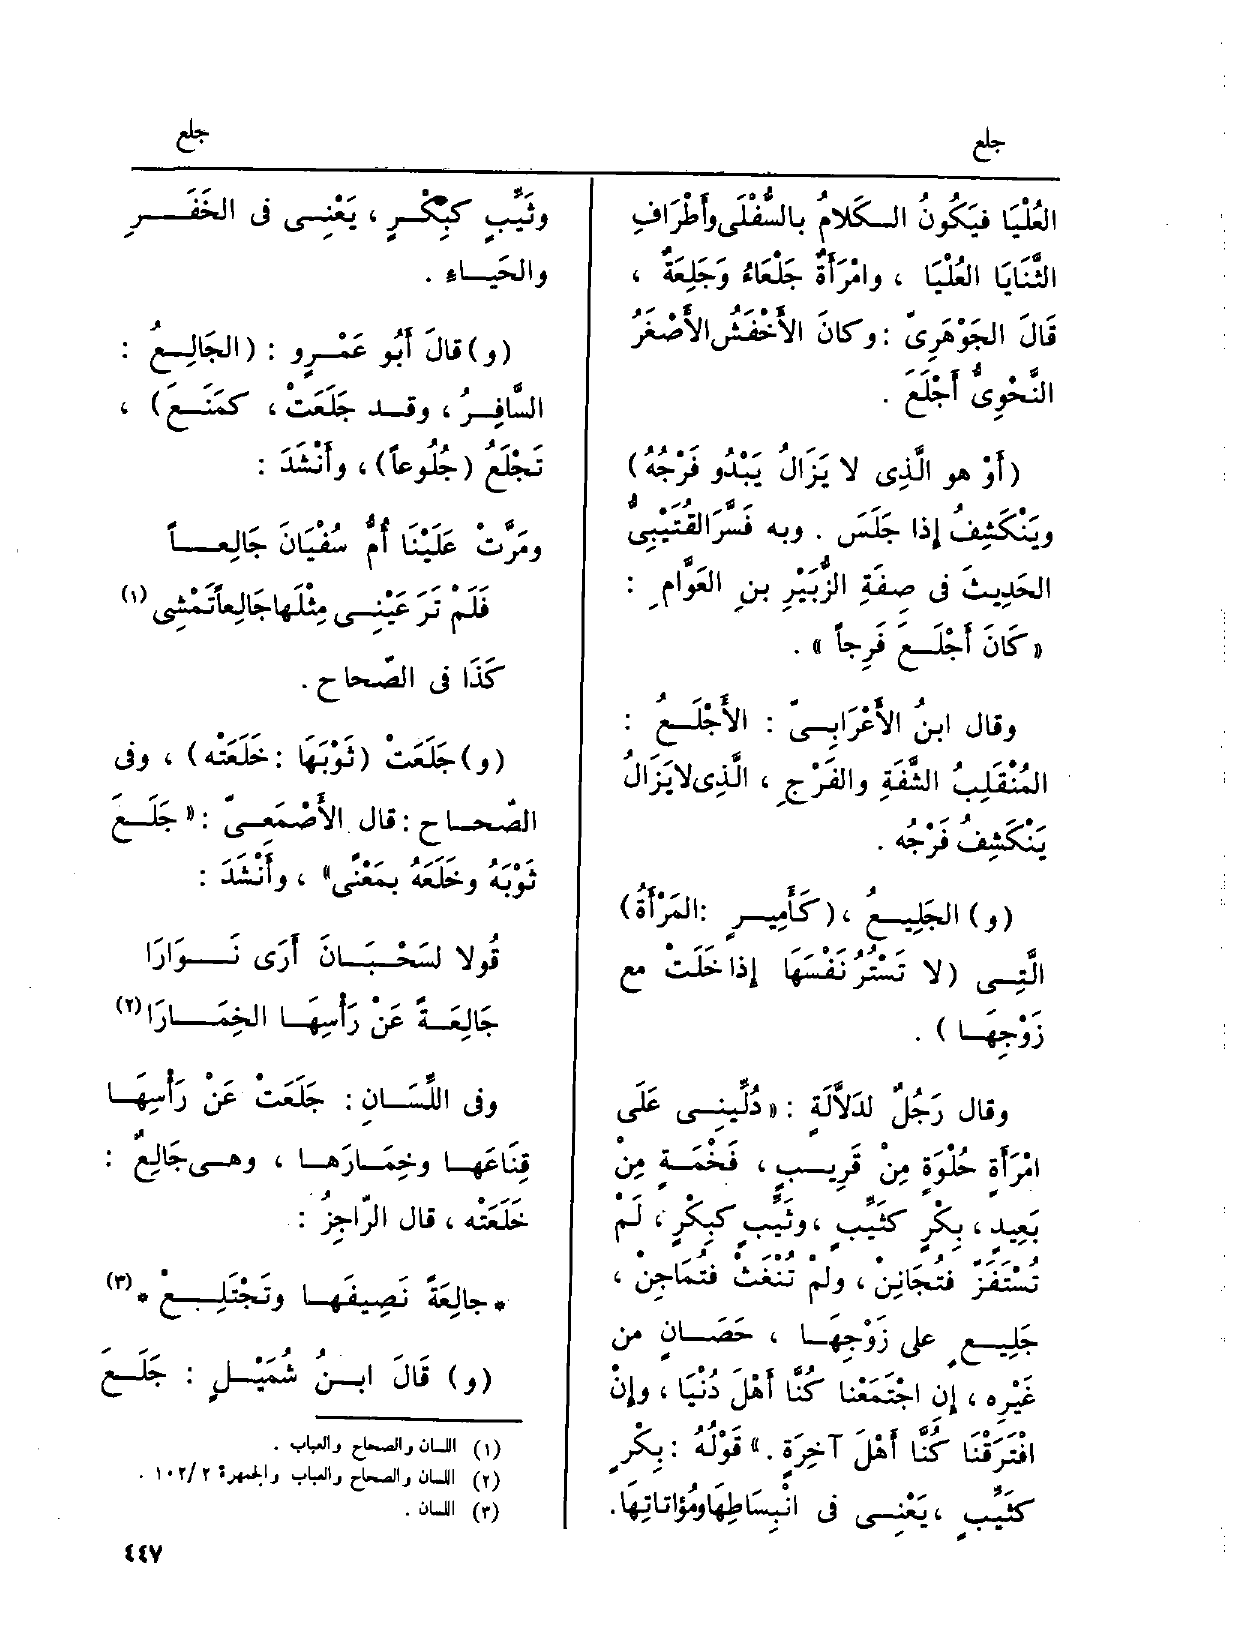 جلع
جلع
العُلْيَا فيَكُونُ الـكَلامُ بالسُّفْلَى وأَطْرَافِ
الثَّنَايَا العُلْيَا ، وامْرَأَةٌ جَلْعَاءُ وَجَلِعَةٌ ،
قَالَ الجَوْهَرِىّ : وكانَ الأَخْفَشُ الأَصْغَرُ
النَّحْوِىُّ أَجْلَعَ .
(أَوْ هو الَّذِى لا يَزَالُ يَبْدُو فَرْجُهُ)
ويَنْكَشِفُ إذا جَلَسَ . وبه فَسَّرَ القُتَيْبِىُّ
الحَدِيثَ فى صِفَةِ الزُّبَيْرِ بنِ العَوَّامِ :
« كَانَ أَجْلَـعَ فَرِجاً » .
وقال ابنُ الأَعْرَابِـىّ : الأَجْلَـعُ :
المُنْقَلِبُ الشَّفَةِ والفَرْجِ ، الَّذِى لا يَزَالُ
يَنْكَشِفُ فَرْجُه .
(و) الجَلِيـعُ ، (كَأَمِيـرٍ : المَرْأَةُ)
الَّتِـى (لا تَسْتُرُ نَفْسَهَا إذا خَلَتْ مع
زَوْجِهَـا ) .
وقال رَجُلٌ لدَلاَّلَةٍ : « دُلِّينِـى عَلَى
امْرَأَةٍ حُلْوَةٍ مِنْ قَرِيـبٍ ، فَخْمَـةٍ مِنْ
بَعِيدٍ ، بِكْرٍ كثَيِّبٍ ، وثَيِّبٍ كبِكْرٍ ، لَمْ
تُسْتَفَزَّ فتُجَانِنْ ، ولَمْ تُنْغَثْ فتُمَاجِنْ ،
جَلِيـعٍ على زَوْجِهَـا ، حَصَـانٍ من
غَيْرِه ، إِنِ اجْتَمَعْنا كُنَّا أَهْلَ دُنْيَا ، وإِنْ
افْتَرَقْنَا كُنَّا أَهْلَ آخِرَةٍ . » قَوْلُهُ : بِكْرٍ
كثَيِّبٍ ، يَعْنِـى فى انْبِسَاطِهَا ومُؤَاتاتِهَا .
وثَيِّبٍ كبِكْرٍ ، يَعْنِـى فى الخَفَـرِ
والحَيَـاءِ .
(و) قالَ أَبُو عَمْـرٍو : (الجَالِـعُ :
السَّافِـرُ ، وقـد جَلَعَتْ ، كمَنَـعَ) ،
تَجْلَعُ (جُلُوعاً) ، وأَنْشَدَ :
ومَرَّتْ عَلَيْنَا أُمُّ سُفْيَانَ جَالِعـاً
فَلَمْ تَرَ عَيْنِـى مِثْلَها جَالِعاً تَمْشِى (١)
كَذَا فى الصّحاح .
(و) جَلَعَتْ (ثَوْبَهَا : خَلَعَتْه) ، وفى
الصّحـاح : قال الأَصْمَعِـىّ : « جَلَـعَ
ثَوْبَهُ وخَلَعَهُ بمَعْنًى » ، وأَنْشَدَ :
قُولا لسَحْبَـانَ أَرَى نَـوَارَا
جَالِعَـةً عَنْ رَأْسِهَـا الخِمَـارَا (٢)
وفى اللِّسَـانِ : جَلَعَتْ عَنْ رَأْسِهَـا
قِنَاعَهـا وخِمَـارَهـا ، وهـى جَالِعٌ :
خَلَعَتْه ، قال الرّاجِزُ :
* جالِعَةً نَصِيفَهـا وتَجْتَلِـعْ * (٣)
(و) قَالَ ابـنُ شُمَيْـلٍ : جَلَـعَ
(١) اللسان والصحاح والعباب .
(٢) اللسان والصحاح والعباب والجمهرة ٢ /١٠٢ .
(٣) اللسان .
٤٤٧